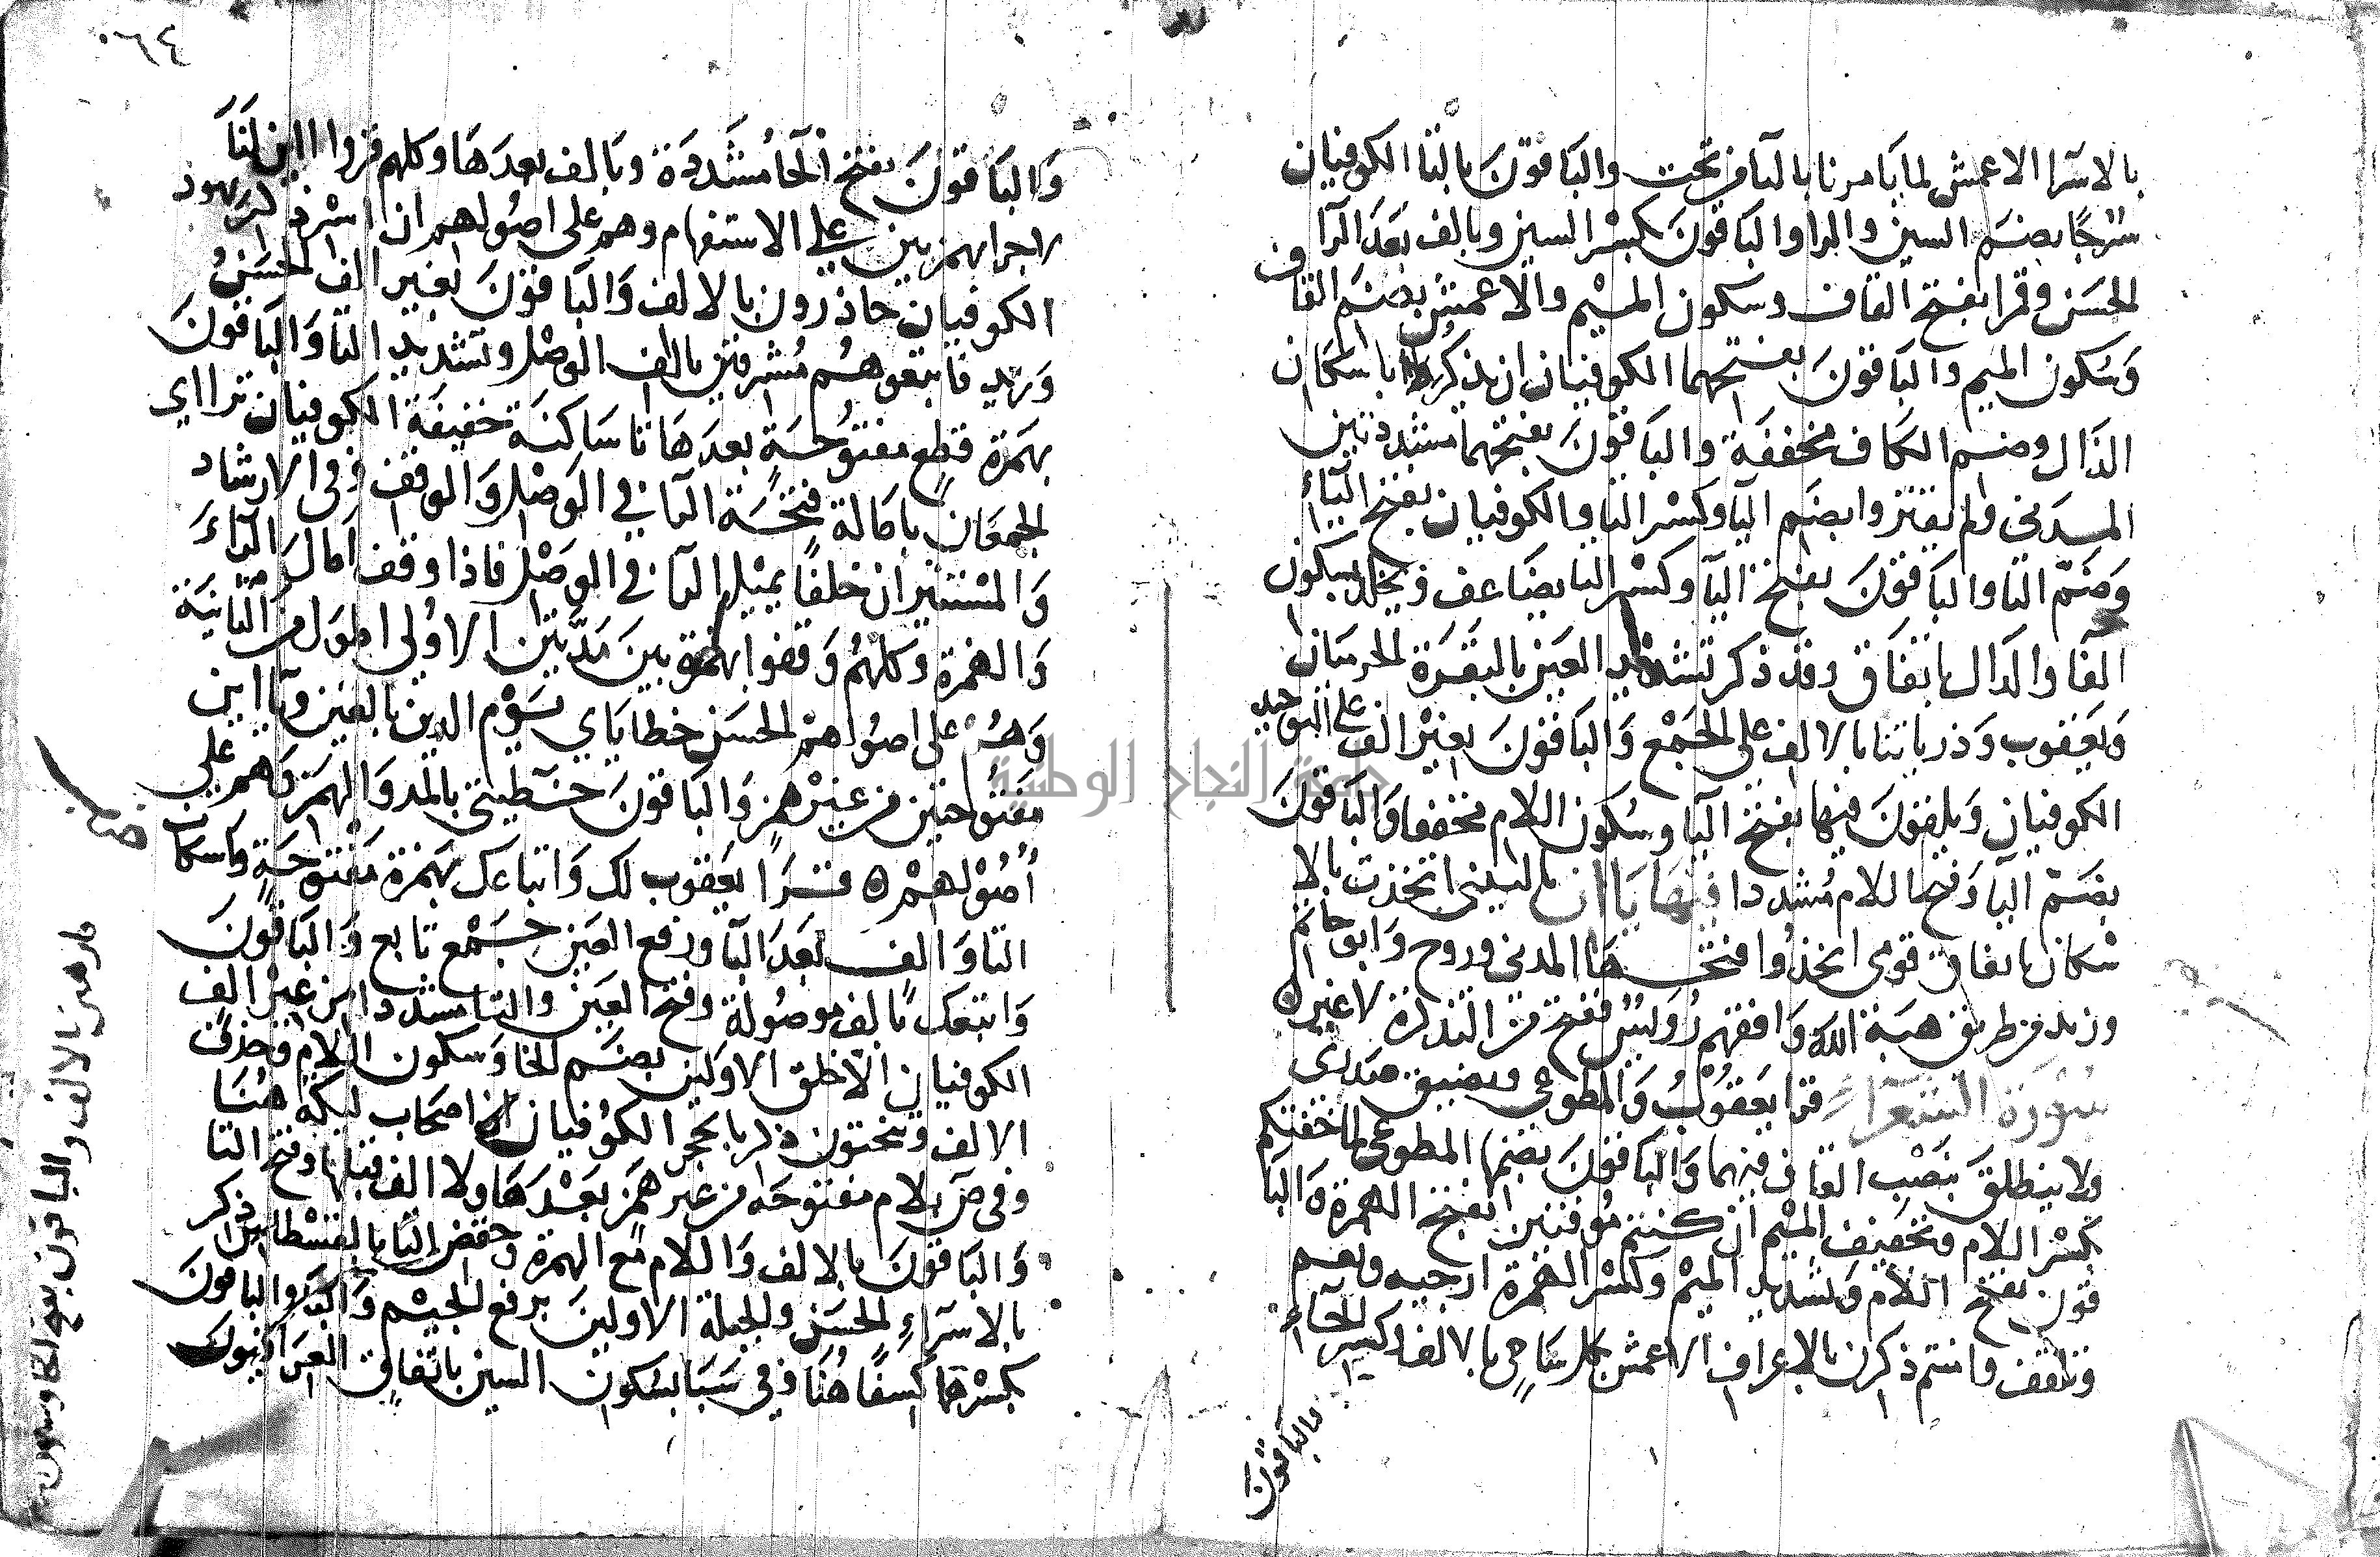 بالاسرا الاعمش لما يامرنا باليا من تحت والباقون بالتا الكوفيان
سرجا بضم السين والرا والباقون بكسر السين وبالف بعد الرا
الحسن وقمرا بفتح القاف وسكون الميم والاعمش بضم القاف
وسكون الميم والباقون بفتحهما الكوفيان ان يذكر باسكان
الذال وضم الكاف مخففة والباقون بفتحهما مشددتين
المدني ولم يقتروا بضم اليا وكسر التا والكوفيان بفتح الياء
وضم التا والباقون بفتح اليا وكسر التا يضاعف ويخلد بسكون
الفا والدال باتفاق وقد ذكر تشديد العين بالبقرة الحرميان
ويعقوب وذرياتنا بالالف على الجمع والباقون بغير الف على التوحيد
الكوفيان ويلقون فيها بفتح اليا وسكون اللام مخففا والباقون
بضم اليا وفتح اللام مشددا فيها ياان يا ليتني اتخذت بالا
سكان باتفاق قومي اتخذوا فتحها المدني وروح وابو حاتم
وزيد من طريق هبة الله وافقهم رويس ففتح من التذكرة لا غير ه
سورة الشعراء قرا يعقوب والمطوعي ويضيق صدري
ولا ينطلق بنصب القاف فيهما والباقون بضمها المطوعي لما خفتكم
بكسر اللام وتخفيف الميم ان كنتم موقنين بفتح الهمزة والبا
قون بفتح اللام وتشديد الميم وكسر الهمزة ارجيه ونعم
وتلقف وامنتم ذكرن بالاعراف الاعمش بكل ساحر بالالف وكسر الحاء
والباقون
٠٦٤
والباقون بفتح الحا مشددة وبالف بعدها وكلهم قروا ااين لنا
لاجرا بهمزتين على الاستفهام وهم على اصولهم ان اسر ذكر بهود
الكوفيان حاذرون بالالف والباقون بغير الف الحسن
وزيد فاتبعوهم مشرقين بالف الوصل وتشديد التا والباقون
بهمزة قطع مفتوحة بعدها تا ساكنة خفيفة الكوفيان تراي
الجمعان بامالة فتحة الرا في الوصل والوقف وفي الارشاد
والمستنير ان خلفا يميل الرا في الوصل فاذا وقف امال الراء
والهمزة وكلهم وقفوا بهمزة بين مدتين الاولى اطول من الثانية
وهم على اصولهم الحسن خطاياي يوم الدين بالفين ويااين
مفتوحتين من غير همز والباقون خطيئتي بالمد والهمز وهم على
اصولهم ه قرا يعقوب لك واتباعك بهمزة مفتوحة واسكان
التا والف بعد البا ورفع العين جمع تابع والباقون
واتبعك بالف موصولة وفتح العين والتا مشددا من غير الف
الكوفيان الا خلق الاولين بضم الخا وسكون اللام وحذف
الالف وينحتون ذكر بالحجر الكوفيان اصحاب ليكة هنا
وفي ص بلام مفتوحة من غير همز بعدها ولا الف قبلها وفتح التا
والباقون بالالف واللام مع الهمزة وخفض التا بالقسطاس ذكر
بالاسراء الحسن والجبلة الاولين برفع الجيم والبا والباقون
بكسرهما كسفا هنا وفي سبا بسكون السين باتفاق
فارهين بالالف والباقون بغير